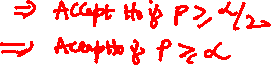 ⇒ Accept H₀ if P ≥ α/2.
⇒ Accept H₀ if P ≥ α